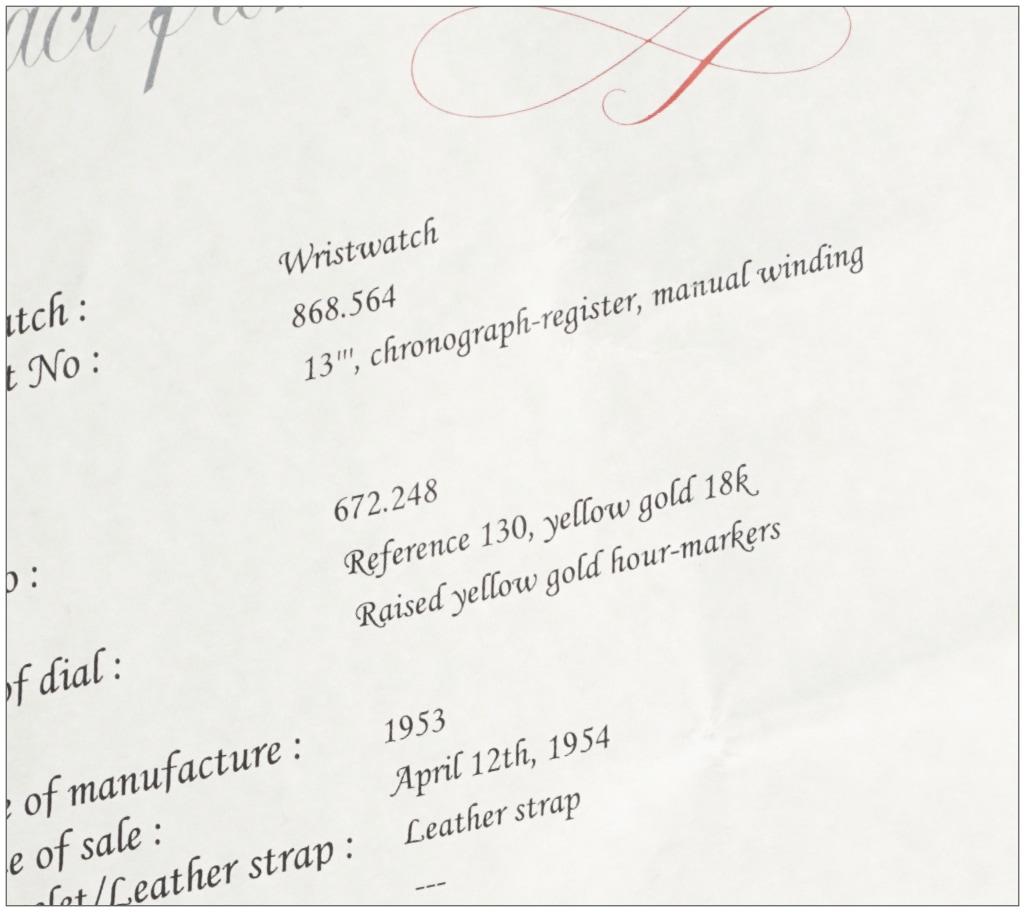 Wristwatch
tch : 868.564
t No : 13''', chronograph-register, manual winding
672.248
o : Reference 130, yellow gold 18k
Raised yellow gold hour-markers
of dial :
1953
e of manufacture : April 12th, 1954
e of sale : Leather strap
let/Leather strap : ---